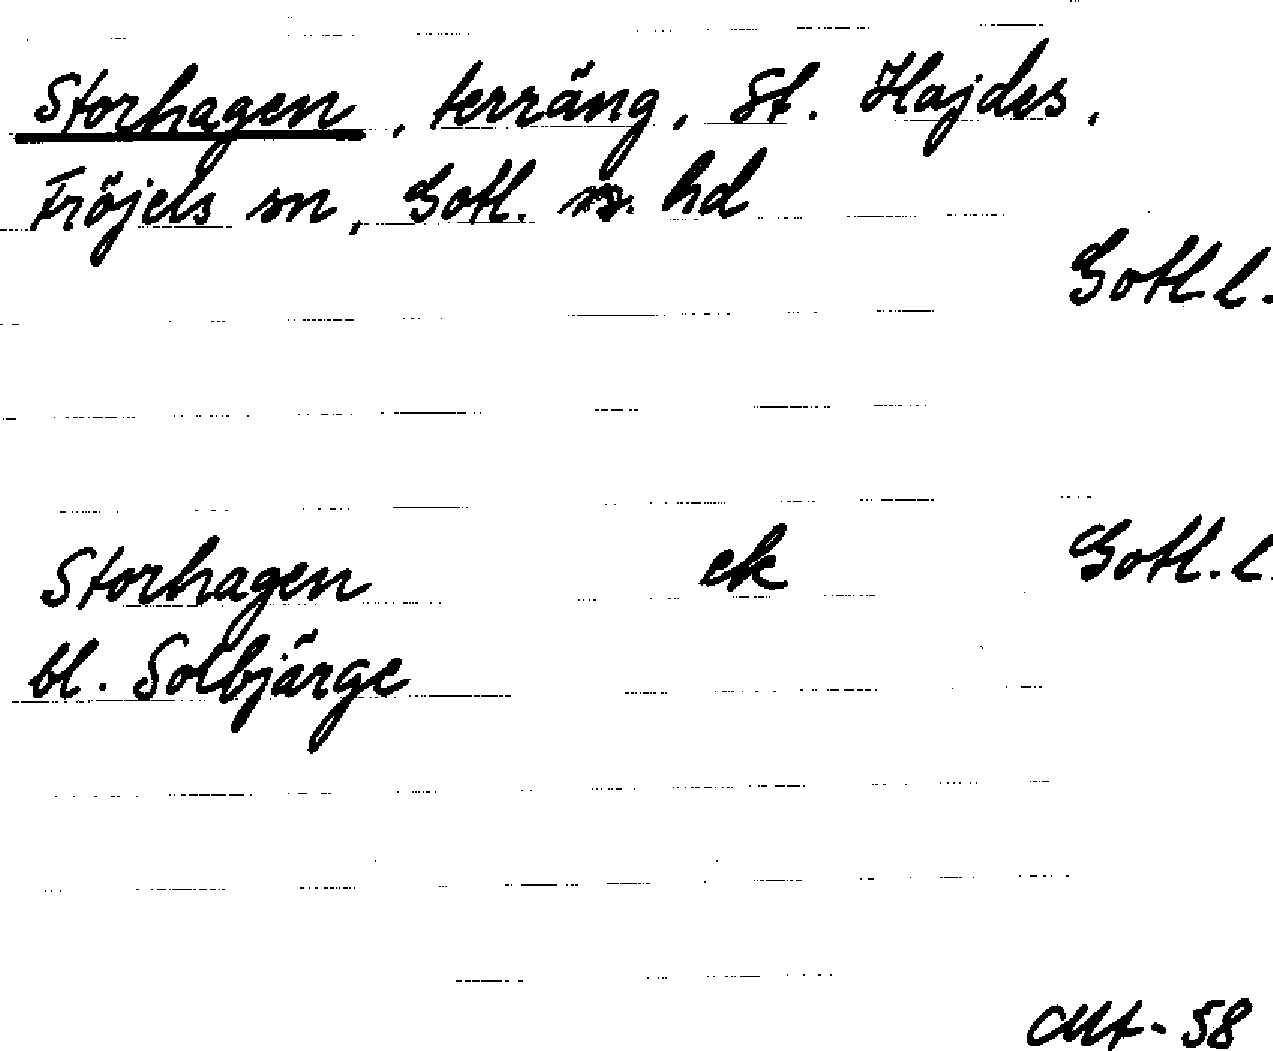 Storhagen, terräng, St. Hajdes,
Fröjels sn, Gotl. s. hd
Gotl. l.
Storhagen ek Gotl. l.
bl. Solbjärge